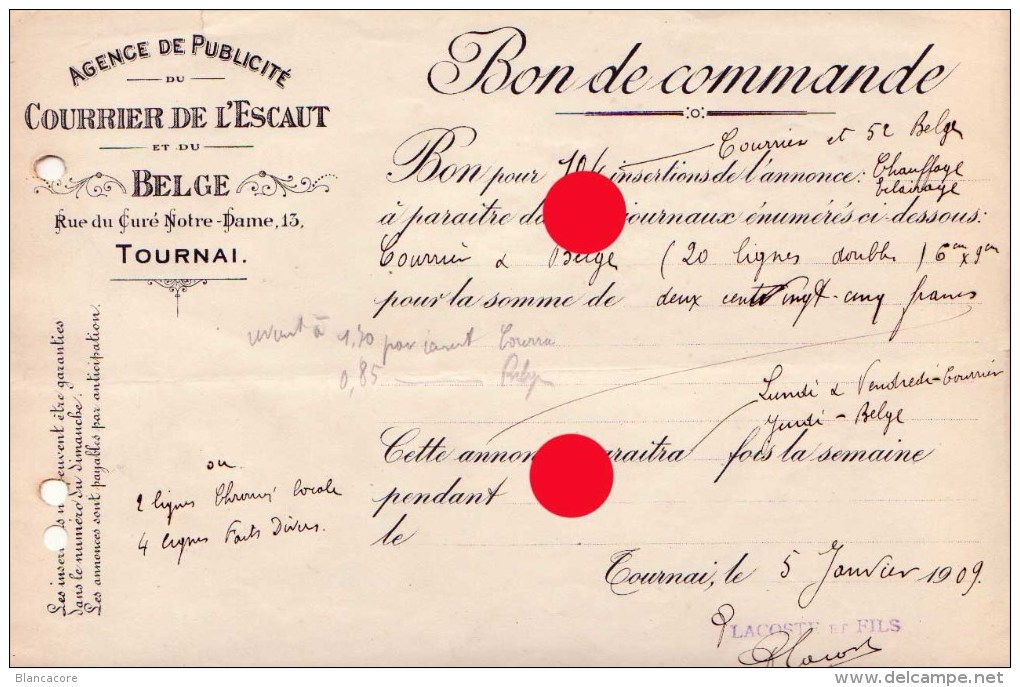 AGENCE DE PUBLICITÉ
DU
COURRIER DE L'ESCAUT
ET DU
BELGE
Rue du Curé Notre-Dame, 13,
TOURNAI.
Bon de commande
Courrier et 52 Belge
Bon pour 104 insertions de l'annonce: Chauffage
Eclairage
à paraitre journaux énumérés ci-dessous:
Courrier & Belge (20 lignes doubles) 6 cm x 9 cm
pour la somme de deux cent vingt-cinq francs
revient à 1,70 par
0,85
Lundi & Vendredi-Courrier
Jeudi - Belge
Cette fois la semaine
pendant
le
ou
2 lignes Chronique locale
4 lignes Faits Divers.
Tournai, le 5 Janvier 1909.
LACOSTE ET FILS
Lacoste
Les
dans le numéro du dimanche.
Les annonces sont payables par anticipation.
peuvent être garanties
Blancacore
delcampe.net